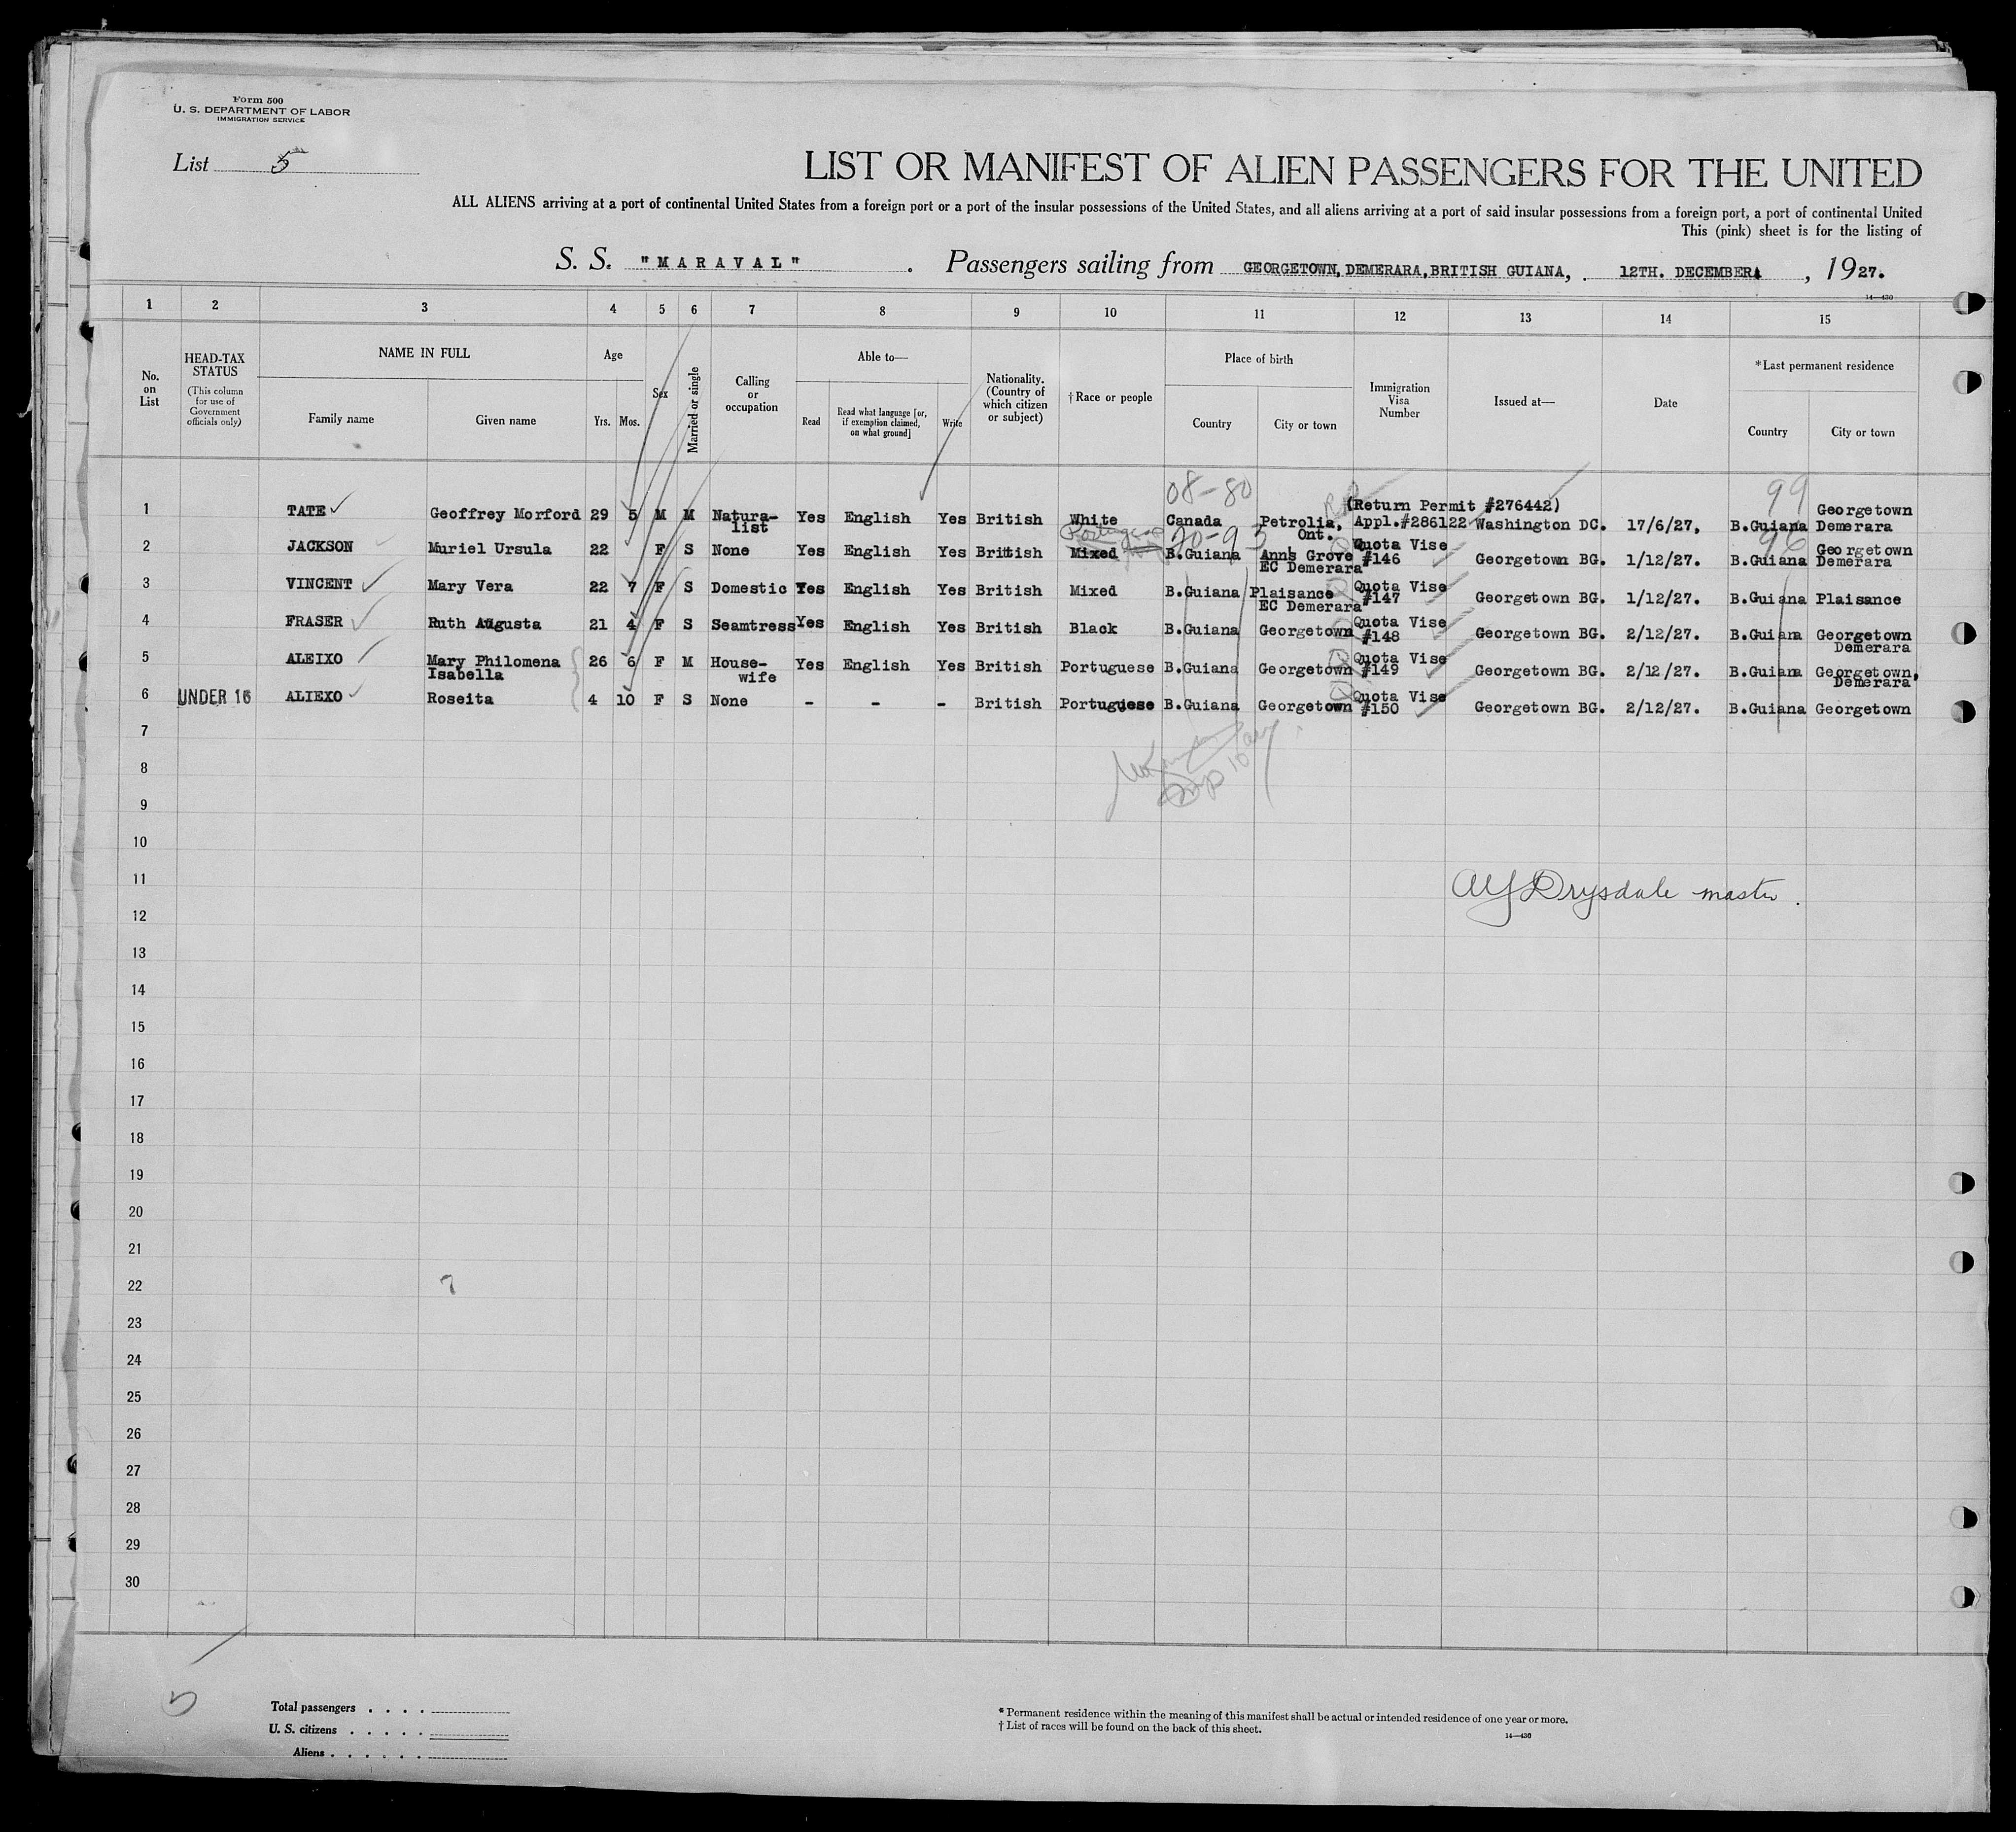 Form 500
U. S. DEPARTMENT OF LABOR
IMMIGRATION SERVICE
List 5
LIST OR MANIFEST OF ALIEN PASSENGERS FOR THE UNITED
ALL ALIENS arriving at a port of continental United States from a foreign port or a port of the insular possessions of the United States, and all aliens arriving at a port of said insular possessions from a foreign port, a port of continental United
This (pink) sheet is for the listing of
S. S. "MARAVAL" . Passengers sailing from GEORGETOWN, DEMERARA, BRITISH GUIANA, 12TH. DECEMBER , 1927.
14—430
1 2 3 4 5 6 7 8 9 10 11 12 13 14 15
No. on List
HEAD-TAX STATUS (This column for use of Government officials only)
NAME IN FULL Family name Given name
Age Yrs. Mos.
Sex
Married or single
Calling or occupation
Able to— Read Read what language [or, if exemption claimed, on what ground] Write
Nationality. (Country of which citizen or subject)
†Race or people
Place of birth Country City or town
Immigration Visa Number
Issued at—
Date
*Last permanent residence Country City or town
08-80 99
1 TATE Geoffrey Morford 29 5 M M Natura-list Yes English Yes British White Canada Petrolia, Ont. (Return Permit #276442) Appl.#286122 Washington DC. 17/6/27, B.Guiana Georgetown Demerara
20-93 96
2 JACKSON Muriel Ursula 22 F S None Yes English Yes British Mixed B.Guiana Ann's Grove EC Demerara Quota Vise #146 Georgetown BG. 1/12/27. B.Guiana Georgetown Demerara
3 VINCENT Mary Vera 22 7 F S Domestic Yes English Yes British Mixed B.Guiana Plaisance EC Demerara Quota Vise #147 Georgetown BG. 1/12/27. B.Guiana Plaisance
4 FRASER Ruth Augusta 21 4 F S Seamtress Yes English Yes British Black B.Guiana Georgetown Quota Vise #148 Georgetown BG. 2/12/27. B.Guiana Georgetown Demerara
5 ALEIXO Mary Philomena Isabella 26 6 F M House-wife Yes English Yes British Portuguese B.Guiana Georgetown Quota Vise #149 Georgetown BG. 2/12/27. B.Guiana Georgetown, Demerara
6 UNDER 16 ALIEXO Roseita 4 10 F S None - - - British Portuguese B.Guiana Georgetown Quota Vise #150 Georgetown BG. 2/12/27. B.Guiana Georgetown
7
8
9
10
11
AY Drysdale master.
12
13
14
15
16
17
18
19
20
21
22
23
24
25
26
27
28
29
30
5
Total passengers . . . .
U. S. citizens . . . . .
Aliens . . . . . .
* Permanent residence within the meaning of this manifest shall be actual or intended residence of one year or more.
† List of races will be found on the back of this sheet.
14—430